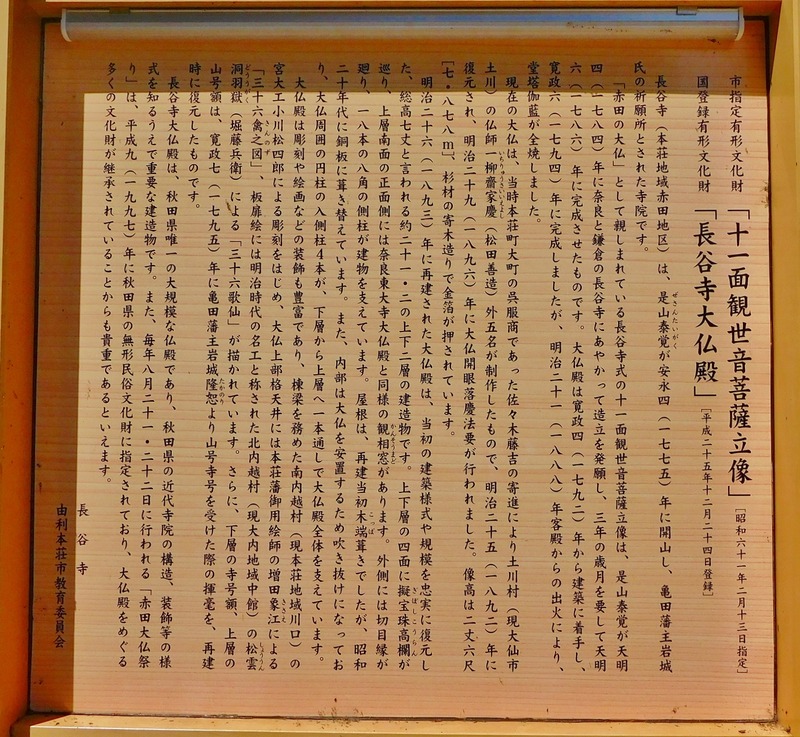 市指定有形文化財 「十一面観世音菩薩立像」 [昭和六十一年二月十三日指定]
国登録有形文化財 「長谷寺大仏殿」 [平成二十五年十二月二十四日登録]
長谷寺（本荘地域赤田地区）は、是山泰覚が安永四（一七七五）年に開山し、亀田藩主岩城
氏の祈願所とされた寺院です。
「赤田の大仏」として親しまれている長谷寺式の十一面観世音菩薩立像は、是山泰覚が天明
四（一七八四）年に奈良と鎌倉の長谷寺にあやかって造立を発願し、三年の歳月を要して天明
六（一七八六）年に完成させたものです。大仏殿は寛政四（一七九二）年から建築に着手し、
寛政六（一七九四）年に完成しましたが、明治二十一（一八八八）年客殿からの出火により、
堂塔伽藍が全焼しました。
現在の大仏は、当時本荘町大町の呉服商であった佐々木藤吉の寄進により土川村（現大仙市
土川）の仏師一柳齋家慶（松田善造）外五名が制作したもので、明治二十五（一八九二）年に
復元され、明治二十九（一八九六）年に大仏開眼落慶法要が行われました。像高は二丈六尺
[七・八七八ｍ]、杉材の寄木造りで金箔が押されています。
明治二十六（一八九三）年に再建された大仏殿は、当初の建築様式や規模を忠実に復元し
た、総高七丈と言われる約二十一・二の上下二層の建造物です。上下層の四面に擬宝珠高欄が
巡り、上層南面の正面側には奈良東大寺大仏殿と同様の観相窓があります。外側には切目縁が
廻り、一八本の八角の側柱が建物を支えています。屋根は、再建当初木端葺きでしたが、昭和
二十年代に銅板に葺き替えています。また、内部は大仏を安置するため吹き抜けになってお
り、大仏周囲の円柱の入側柱４本が、下層から上層へ一本通しで大仏殿全体を支えています。
大仏殿は彫刻や絵画などの装飾も豊富であり、棟梁を務めた南内越村（現本荘地域川口）の
宮大工小川松四郎による彫刻をはじめ、大仏上部格天井には本荘藩御用絵師の増田象江による
「三十六禽之図」、板扉絵には明治時代の名工と称された北内越村（現大内地域中館）の松雲
洞羽嶽（堀藤兵衛）による「三十六歌仙」が描かれています。さらに、下層の寺号額、上層の
山号額は、寛政七（一七九五）年に亀田藩主岩城隆恕より山号寺号を受けた際の揮毫を、再建
時に復元したものです。
長谷寺大仏殿は、秋田県唯一の大規模な仏殿であり、秋田県の近代寺院の構造、装飾等の様
式を知るうえで重要な建造物です。また、毎年八月二十一・二十二日に行われる「赤田大仏祭
り」は、平成九（一九九七）年に秋田県の無形民俗文化財に指定されており、大仏殿をめぐる
多くの文化財が継承されていることからも貴重であるといえます。
長谷寺
由利本荘市教育委員会